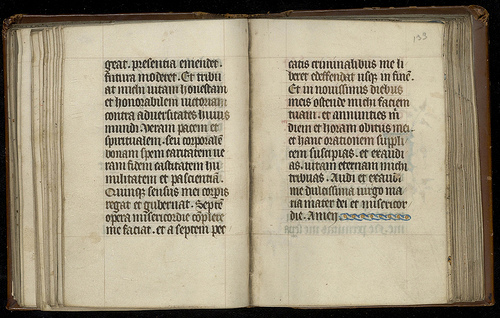 geat. presentia emendet.
futura moderet. Et tribu
at michi uitam honestam
et honorabilem uictoriam
contra aduersitates huius
mundi. Veram pacem et
spiritualem. seu corporalē
bonam spem caritatem ue
ram fidem castitatem hu
militatem et pacienciā.
Quinqz sensus mei corpis
regat et gubernat. Septē
opera misericordie cōplere
me faciat. et a septem pec
133
catis criminalibus me li
beret et deffendat usqz in finē.
Et in nouissimis diebus
meis ostende michi faciem
tuam. et annuncies m̄
diem et horam obitus mei.
et hanc orationem suppli
cem suscipias. et exaudi
as. uitam eternam michi
tribuas. Audi et exaudi
me dulcissima uirgo ma
ria mater dei et misericor
die. Amen